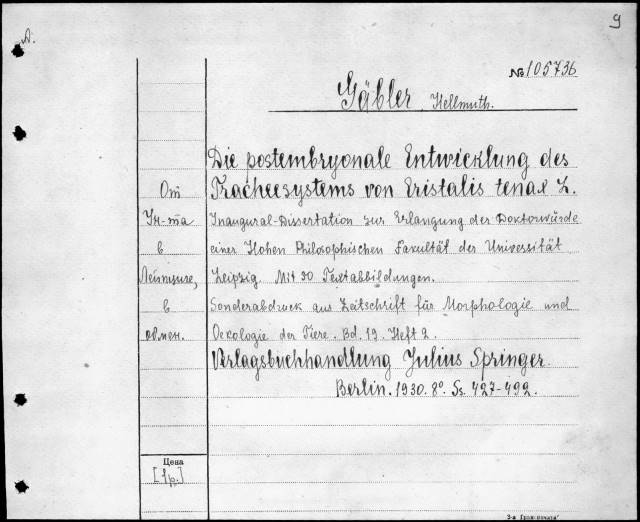 9
A.
№ 105736
Gäbler, Hellmuth.
Die postembryonale Entwicklung des
Tracheesystems von Eristalis tenax L.
Inaugural-Dissertation zur Erlangung der Doktorwürde
einer Hohen Philosophischen Fakultät der Universität
Leipzig. Mit 30 Textabbildungen.
Sonderabdruck aus Zeitschrift für Morphologie und
Oekologie der Tiere. Bd. 19. Heft 2.
Verlagsbuchhandlung Julius Springer.
Berlin. 1930. 8°. Ss. 427-492.
От
Ин-та
в
Лейпциге,
в
обмен.
Цена
[1р.]